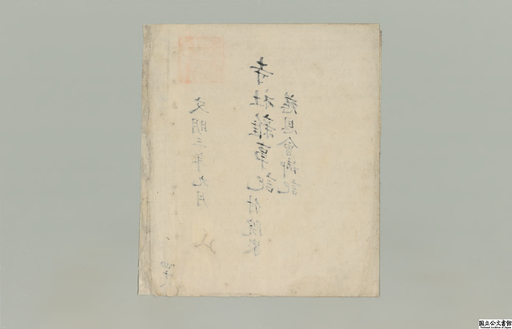 慈恩會御記
寺社雜事記 付院家
文明二年九月
国立公文書館
National Archives of Japan